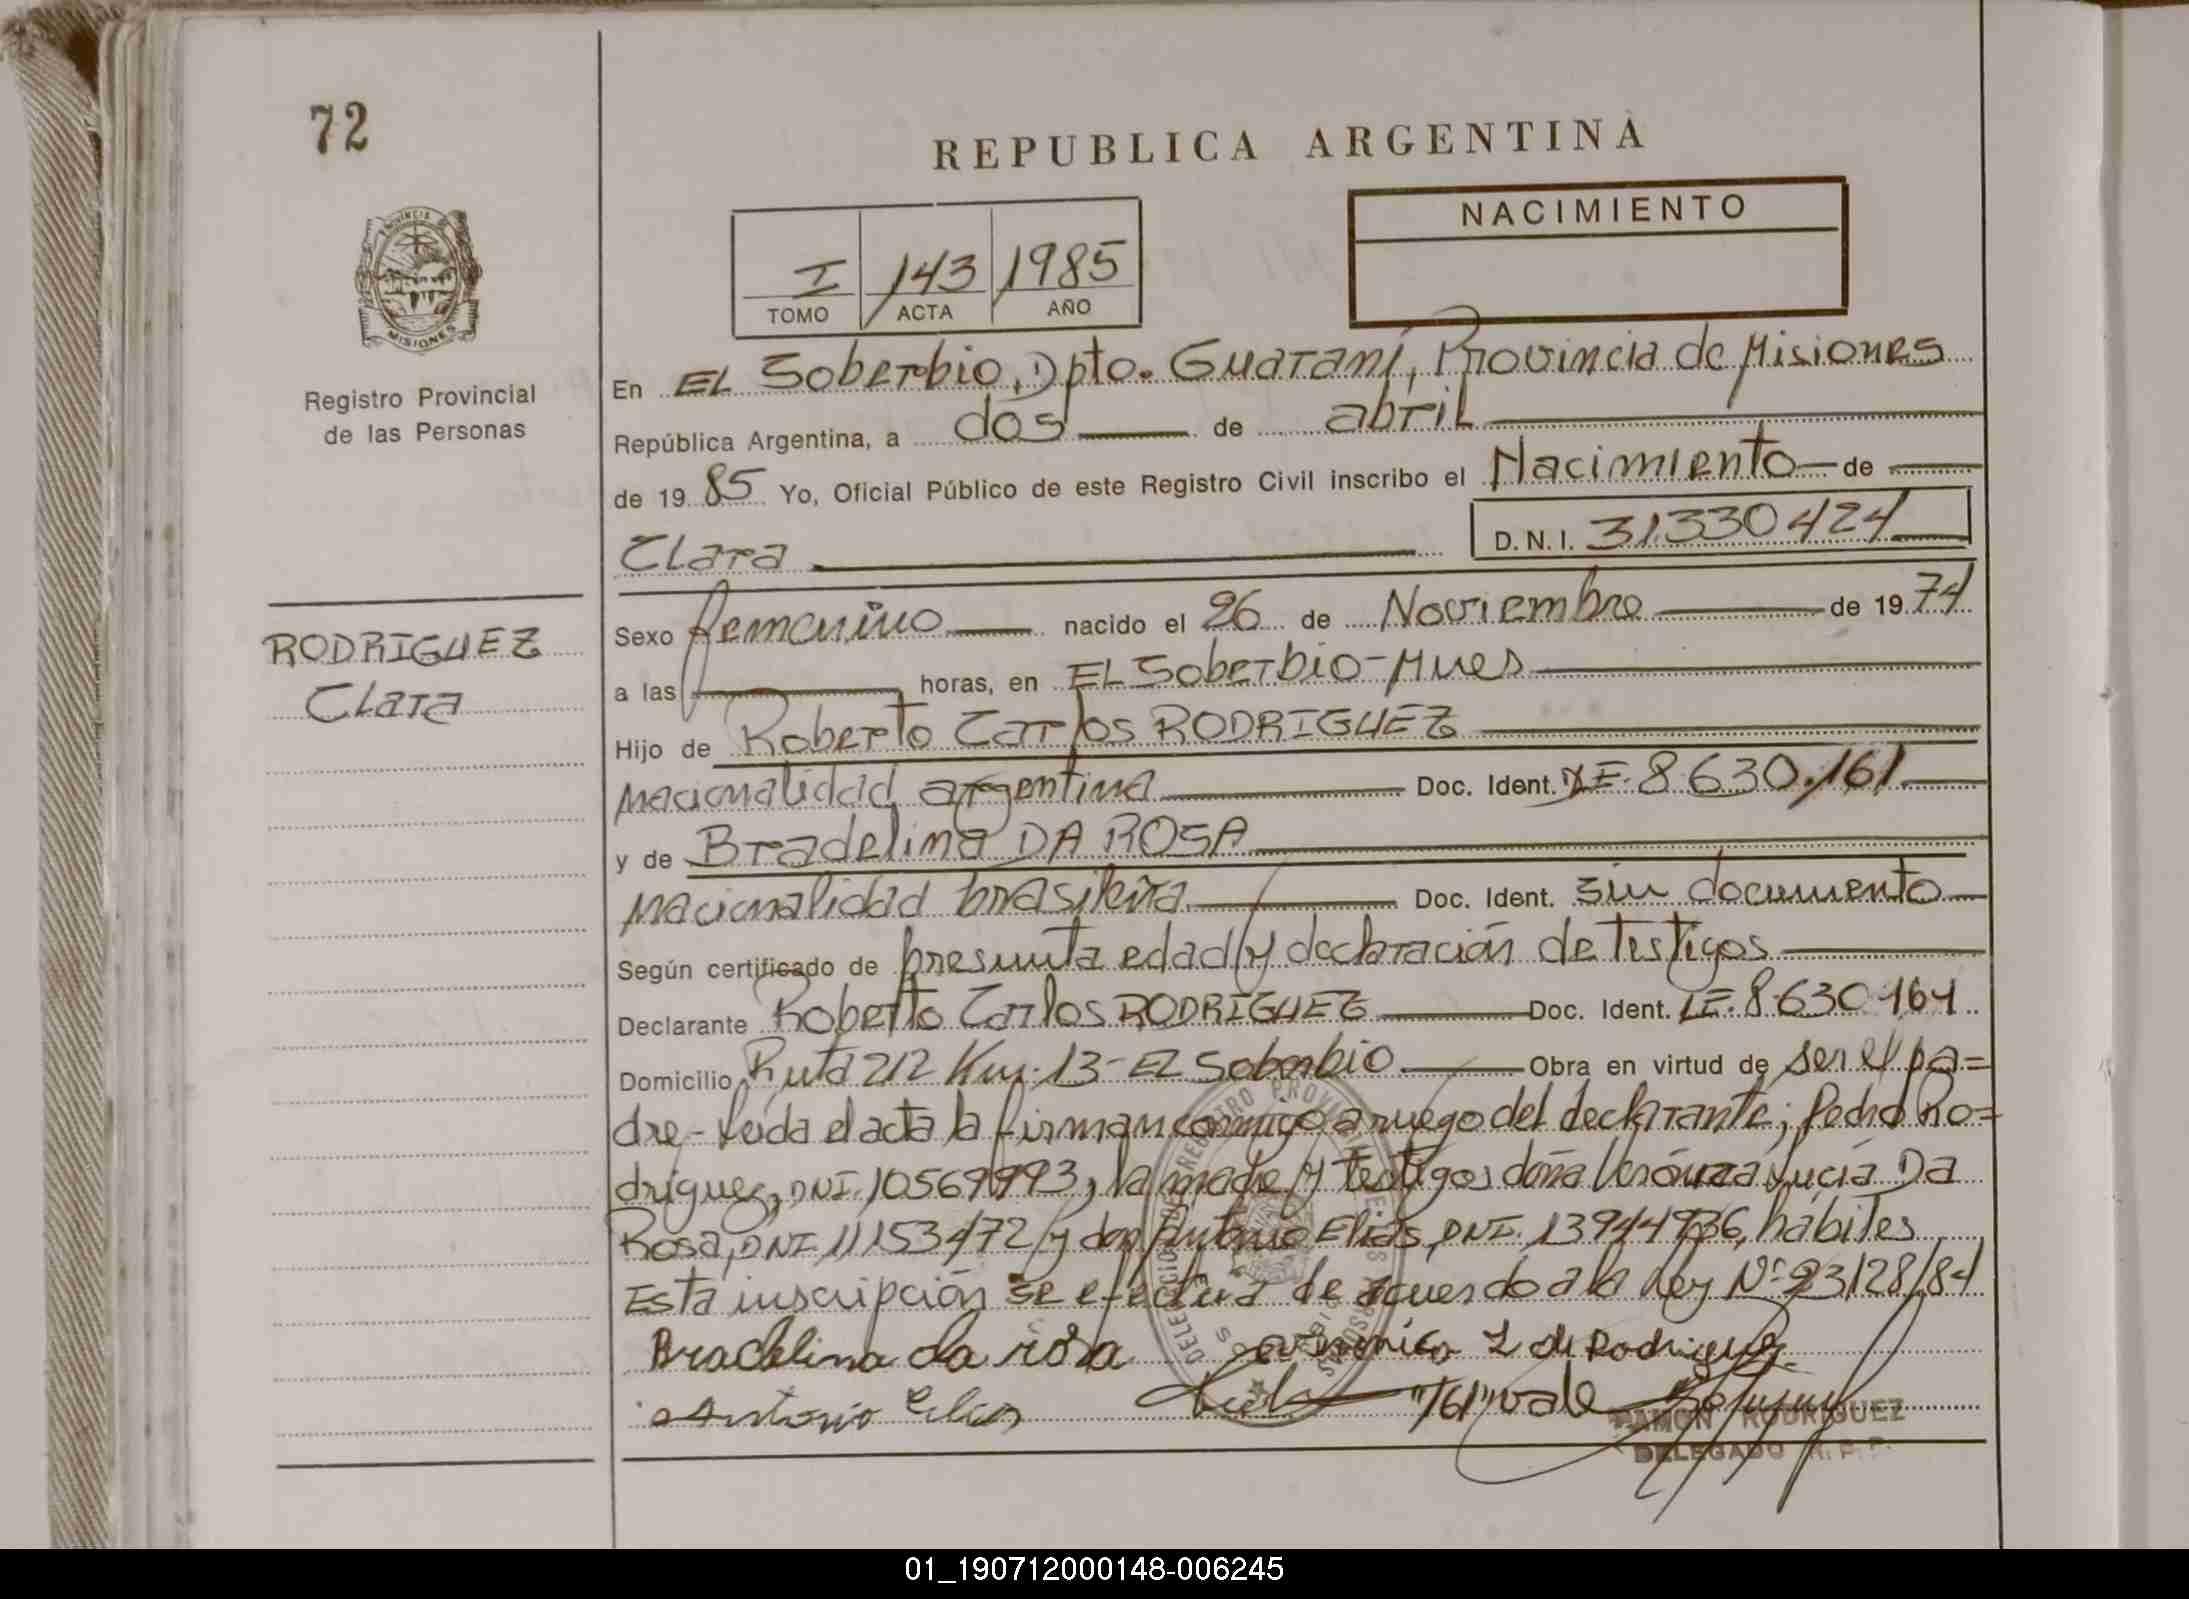 72
REPUBLICA ARGENTINA
PROVINCIA DE
MISIONES
Registro Provincial
de las Personas
I 143 1985
TOMO ACTA AÑO
NACIMIENTO
En EL Soberbio, Dpto. Guaraní, Provincia de Misiones
República Argentina, a dos de abril
de 19 85 Yo, Oficial Público de este Registro Civil inscribo el Nacimiento de
Clara D.N.I. 31.330424
RODRIGUEZ
Clara
Sexo femenino nacido el 26 de Noviembre de 19 74
a las horas, en EL Soberbio-Mnes
Hijo de Roberto Carlos RODRIGUEZ
nacionalidad argentina Doc. Ident. LE. 8.630.161
y de Bradelina DA ROSA
nacionalidad brasileña Doc. Ident. sin documento
Según certificado de presunta edad y declaración de testigos
Declarante Roberto Carlos RODRIGUEZ Doc. Ident. LE. 8.630.161
Domicilio Ruta 212 Km. 13-EL Soberbio Obra en virtud de ser el pa=
dre-Leída el acta la firman conmigo a ruego del declarante; Pedro Ro=
driguez, DNI. la madre y testigos doña Verónica Lucía Da
Rosa, DNI. 11153472 y don Antonio Elias, DNI. hábiles
Esta inscripción se efectua de acuerdo a la Ley Nº 23128/84
Bradelina da rosa Veronica L de Rodriguez
Antonio Elias "161" vale
RAMON RODRIGUEZ
DELEGADO R. P. P.
01_190712000148-006245